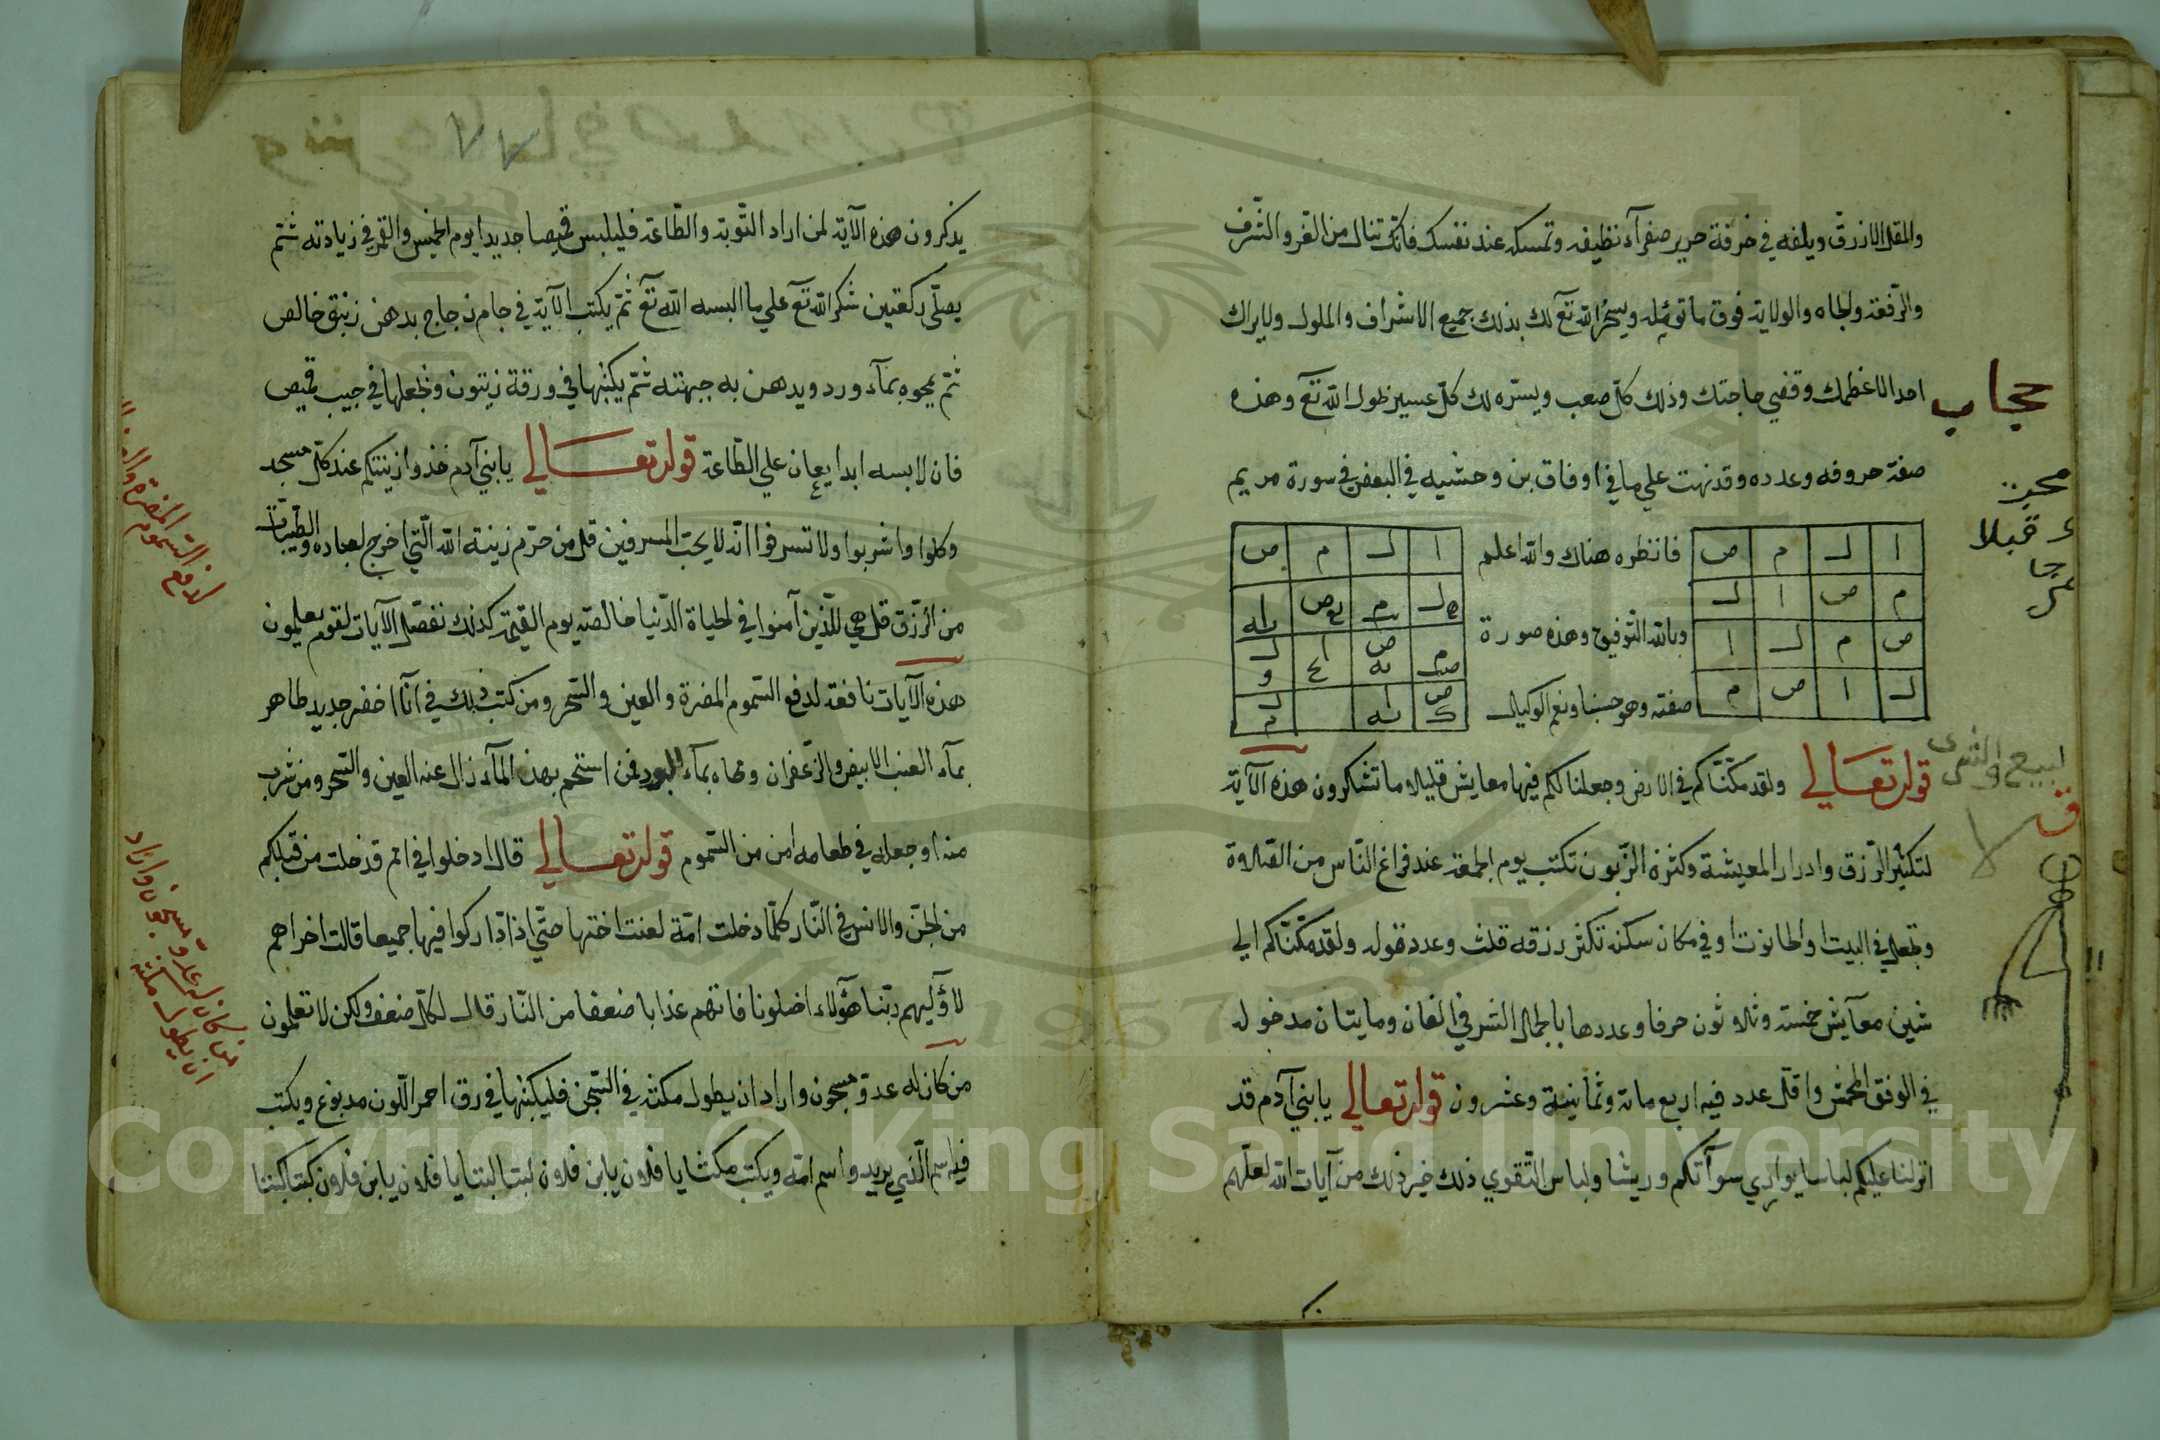 والمقل الازرق ويلفه في خرقة حرير صفرآء نظيفه وتمسكه عند نفسك فانك تنال من العز والشرف
والرفعة والجاه والولاية فوق ما تؤمله ويسخر الله تع لك بذلك جميع الاشراف والملوك ولا يراك
احد الا عظمك وقضي حاجتك وذلك كل صعب ويسر لك كل عسير بحول الله تع وهذه
حجاب
صفة حروفه وعدده وقد نهت علي ما في اوفاق بن وحشيه في البعض في سورة مريم
ا ل م ص
م ص ا ل
ص م ل ا
ل ا ص م
فانظره هناك والله اعلم
وبالله التوفيق وهذه صورة
صفته وهو حسبنا ونعم الوكيل
ا ل م ص
لبيع والشرى
قوله تعالي ولقد مكناكم في الارض وجعلنا لكم فيها معايش قليلا ما تشكرون هذه الآية
لتكثير الرزق وادرار المعيشة وكثرة الزبون تكتب يوم الجمعة عند فراغ الناس من الصلاوة
وتجعل في البيت او الحانوت او في مكان سكنه تكثر رزقه قلت وعدد قوله ولقد مكناكم الي
شين معآيش خمسة وثلاثون حرفا وعددها بالجمل الشرفي الفان ومايتان مدخوله
في الوفق المخمس واقل عدد فيه اربع مائة وثمانية وعشرون قوله تعالي يا بني آدم قد
انزلنا عليكم لباسا يواري سوآتكم وريشا ولباس التقوي ذلك خير ذلك من آيات الله لعلهم
٧٧
يذكرون هذه الآية لمن اراد التوبة والطاعة فليلبس قميصا جديدا يوم الخميس والقمر في زيادته ثم
يصلي ركعتين شكر الله تع علي ما البسه الله تع ثم يكتب الآية في جام زجاج بدهن زنبق خالص
ثم يمحوه بمآء ورد ويدهن به جبهته ثم يكتبها في ورقة زيتون وتجعلها في جيب قميص
فان لابسه ابدا يعان علي الطاعة قوله تعالي يا بني آدم خذوا زينتكم عند كل مسجد
وكلوا واشربوا ولا تسرفوا انه لا يحب المسرفين قل من حرم زينة الله التي اخرج لعباده والطيبات
من الرزق قل هي للذين آمنوا في الحياة الدنيا خالصة يوم القيمة كذلك نفصل الآيات لقوم يعلمون
هذه الآيات نافعة لدفع السموم المضرة والعين والسحر ومن كتب ذلك في انآ اخضر جديد طاهر
بمآء العنب الابيض والزعفران ومحاه بمآء البرد فمن استحم بهذا المآء زال عنه العين والسحر ومن شرب
منه او جعله في طعامه امن من السموم قوله تعالي قال ادخلوا في امم قد خلت من قبلكم
من الجن والانس في النار كلما دخلت امة لعنت اختها حتي اذا اداركوا فيها جميعا قالت اخراهم
لاوليهم ربنا هؤلاء اضلونا فاتهم عذابا ضعفا من النار قال لكل ضعف ولكن لا تعلمون
من كان له عدو مسجون واراد ان يطول مكثه في السجن فليكتبها في رق احمر اللون مدبوغ ويكتب
فيه اسم الذي يريد واسم امه ويكتب مكثا يا فلان يا بن فلان لبثا لبثا يا فلان يا بن فلان كبتا كبتا
لدفع السموم المضرة
لمن كان له عدو مسجون واراد
ان يطول مكثه